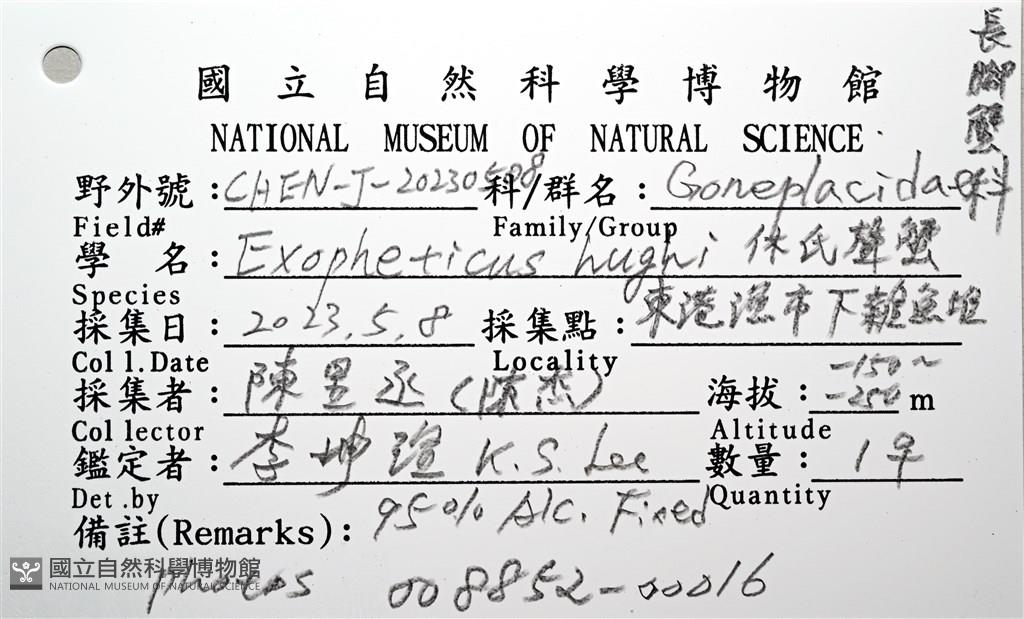 長腳蟹科
國立自然科學博物館
NATIONAL MUSEUM OF NATURAL SCIENCE
野外號：CHEN-J-20230508 科/群名：Goneplacidae
Field# Family/Group
學 名：Exopheticus hughi 休氏聲蟹
Species
採集日：2023.5.8 採集點：東港漁市下雜魚堆
Coll.Date Locality
採集者：陳昱丞(陳杰) 海拔：-150~-250 m
Collector Altitude
鑑定者：李坤瑄 K.S. Lee 數量：1♀
Det.by Quantity
備註(Remarks)：95% Alc. Fixed
photos 008852-00016
國立自然科學博物館
NATIONAL MUSEUM OF NATURAL SCIENCE